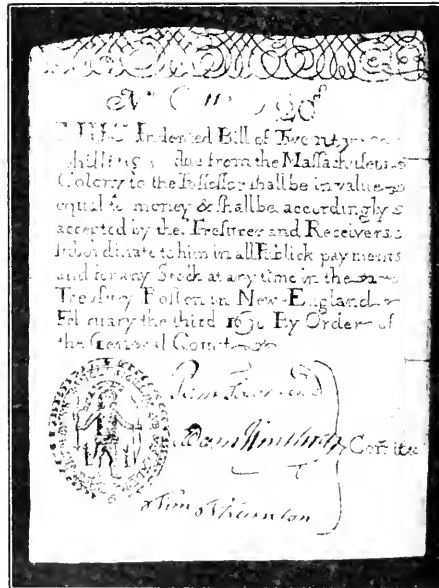 20ˢ
THIS Indented Bill of Twenty
Shillings due from the Massachusetts
Colony to the Possessor shall be in value
equal to money & shall be accordingly
accepted by the Tresurer and Receivers
subordinate to him in all Publick payments
and for any Stock at any time in the
Treasury Boston in New-England
FebruarY the third 1690 By Order of
the General Court
Adam Winthrop Comᵗᵉᵉ
Tim Thornton